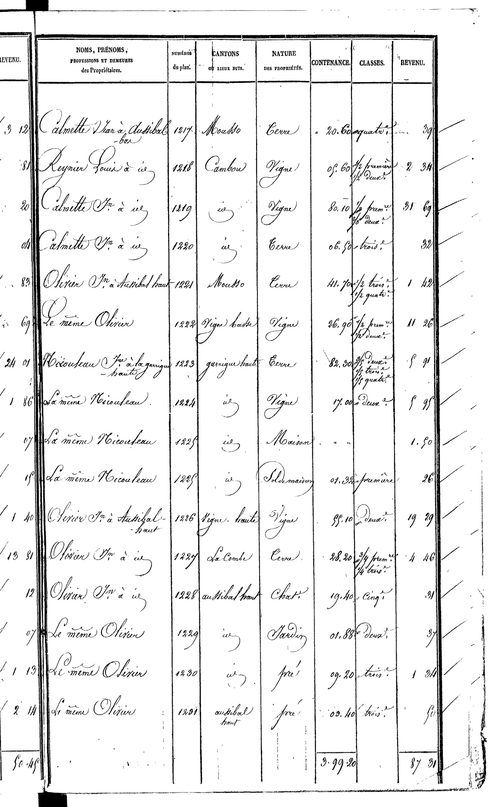 REVENU.
NOMS, PRÉNOMS, PROFESSIONS ET DEMEURES des Propriétaires. NUMÉROS du plan. CANTONS OU LIEUX DITS. NATURE DES PROPRIÉTÉS. CONTENANCE. CLASSES. REVENU.
3 12 Calmette à Aussibal bas 1217 Mousso Terre 20.60 quatr.e 39
81 Reynier Louis à id 1218 Cambou Vigne 05.60 1/2 première 1/2 deux.e 2 34
20 Calmette J.n à id 1219 id Vigne 80.10 1/2 prem.re 1/2 deux.e 31 69
04 Calmette J.n à id 1220 id Terre 06.50 trois.e 32
83 Olivier J.n à Aussibal haut 1221 Mousso Terre 41.70 1/2 trois.e 1/2 quatr.e 1 42
69 Le même Olivier 1222 Vigne basse Vigne 26.90 1/2 prem.re 1/2 deux.e 11 26
24 01 Nicouleau à la garrigue haute 1223 garrigue haute Terre 82.30 deux.e trois.e quatr.e 5 91
1 86 La même Nicouleau 1224 id Vigne 17.00 deux.e 5 95
07 La même Nicouleau 1225 id Maison 1.50
15 La même Nicouleau 1225 id Sol de maison 01.32 première 26
1 40 Olivier J.n à Aussibal haut 1226 Vigne haute Vigne 55.10 deux.e 19 29
13 81 Olivier J.n à id 1227 La Combe Terre 28.20 3/4 prem.re 1/4 trois.e 4 46
12 Olivier J.n à id 1228 aussibal haut Chat.e 19.40 cinq.e 31
07 Le même Olivier 1229 id Jardin 01.88 deux.e 37
1 13 Le même Olivier 1230 id pré 09.20 trois.e 1 34
2 14 Le même Olivier 1231 aussibal haut pré 03.40 trois.e 50
50.45 3.99.20 87 31